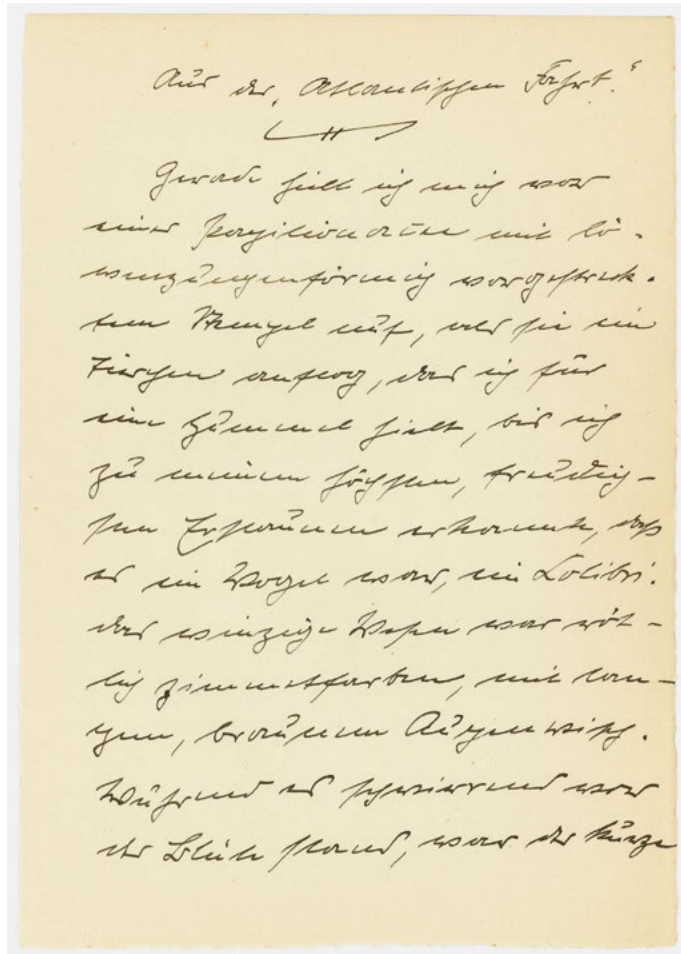 Aus der „Atlantischen Fahrt.“
Gerade hielt ich mich vor
einer Papilionacee mit lö-
wenzungenförmig vorgestreck-
tem Stempel auf, als sie ein
Tierchen anflog, das ich für
eine Hummel hielt, bis ich
zu meinem höchsten, freudig-
sten Erstaunen erkannte, daß
es ein Vogel war, ein Kolibri.
Das winzige Wesen war röt-
lich zimmetfarben, mit lan-
gem, braunem Augenwisch.
Während es schwirrend vor
der Blüte stand, war der kurze